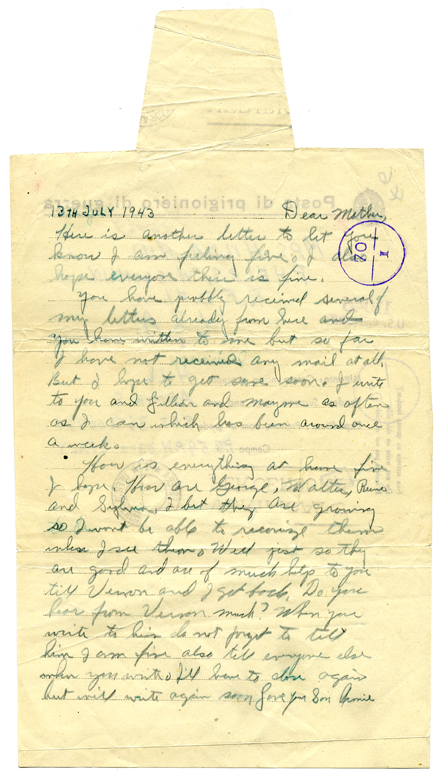 Posta di prigioniero di guerra
13TH JULY 1943 Dear Mother,
Here is another letter to let you
know I am feeling fine. I also
hope everyone there is fine.
You have probbly received several of
my letters already from here and
you have written to me but so far
I have not received any mail at all.
But I hope to get some soon. I write
to you and Lillian and Mayme as often
as I can which has been around once
a week.
How is everything at home fine
I hope. How are George, Walter,
and I bet they are growing
so I wont be able to reconize them
when I see them. Well just so they
are good and are of much help to you
till Vernon and I get back. Do you
hear from Vernon much? When you
write to him do not forget to tell
him I am fine also tell everyone else
when you write. I'll have to close again
but will write again soon Love your Son
I
208
Campo